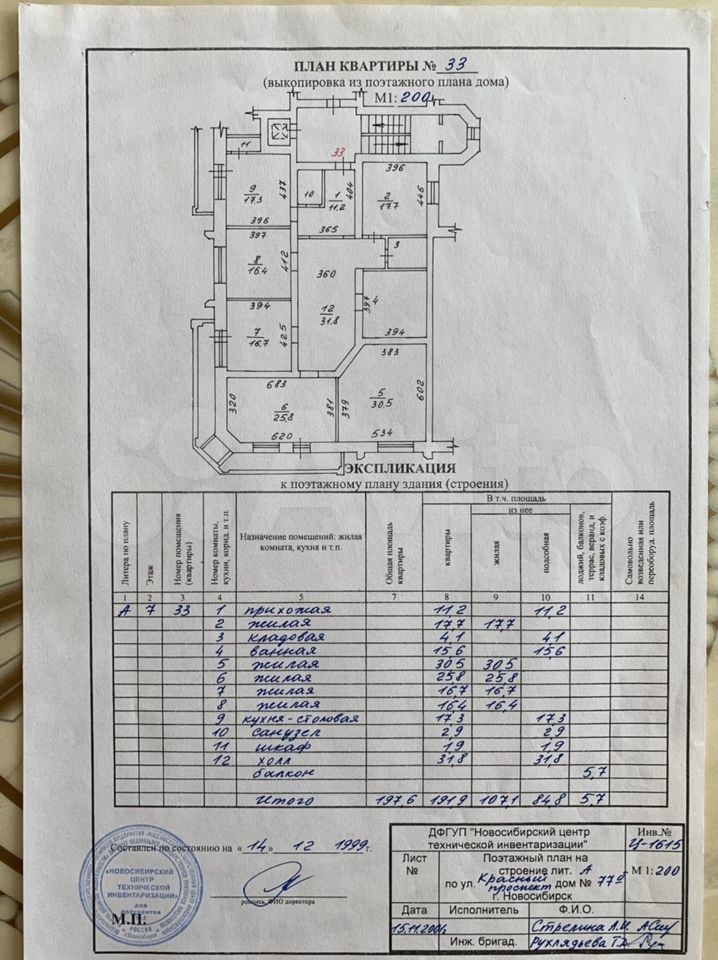 ПЛАН КВАРТИРЫ № 33
(выкопировка из поэтажного плана дома)
М1: 200
33
11
9
17.3
437
396
10
1
11.2
404
365
396
2
17.7
446
397
8
16.4
412
3
360
12
31.8
4
397
394
394
7
16.7
425
383
5
30.5
602
379
534
683
320
6
25.8
381
620
ЭКСПЛИКАЦИЯ
к поэтажному плану здания (строения)
Литера по плану
Этаж
Номер помещения (квартиры)
Номер комнаты, кухни, корид. и т.п.
Назначение помещений: жилая комната, кухня и т.п.
Общая площадь квартиры
В т.ч. площадь
из нее
квартиры
жилая
подсобная
лоджий, балконов, террас, веранд, и кладовых с коэф.
Самовольно возведенная или переоборуд. площадь
1 2 3 4 5 7 8 9 10 11 14
А 7 33 1 прихожая 11,2 11,2
2 жилая 17,7 17,7
3 кладовая 4,1 4,1
4 ванная 15,6 15,6
5 жилая 30,5 30,5
6 жилая 25,8 25,8
7 жилая 16,7 16,7
8 жилая 16,4 16,4
9 кухня-столовая 17,3 17,3
10 санузел 2,9 2,9
11 шкаф 1,9 1,9
12 холл 31,8 31,8
балкон 5,7
Итого 197,6 191,9 107,1 84,8 5,7
Составлен по состоянию на « 14 » 12 1999г.
роспись, ФИО директора
«НОВОСИБИРСКИЙ
ЦЕНТР
ТЕХНИЧЕСКОЙ
ИНВЕНТАРИЗАЦИИ»
для
документов
РОССИЯ
М.П.
ДФГУП "Новосибирский центр
технической инвентаризации"
Инв.№
Ц-1615
Лист
№
Поэтажный план на
строение лит. А
по ул. Красный проспект дом № 77б
г. Новосибирск
М 1:200
Дата Исполнитель Ф.И.О.
15.11.2004 Стрелина А.И.
Инж. бригад. Рухлядьева Т.А.